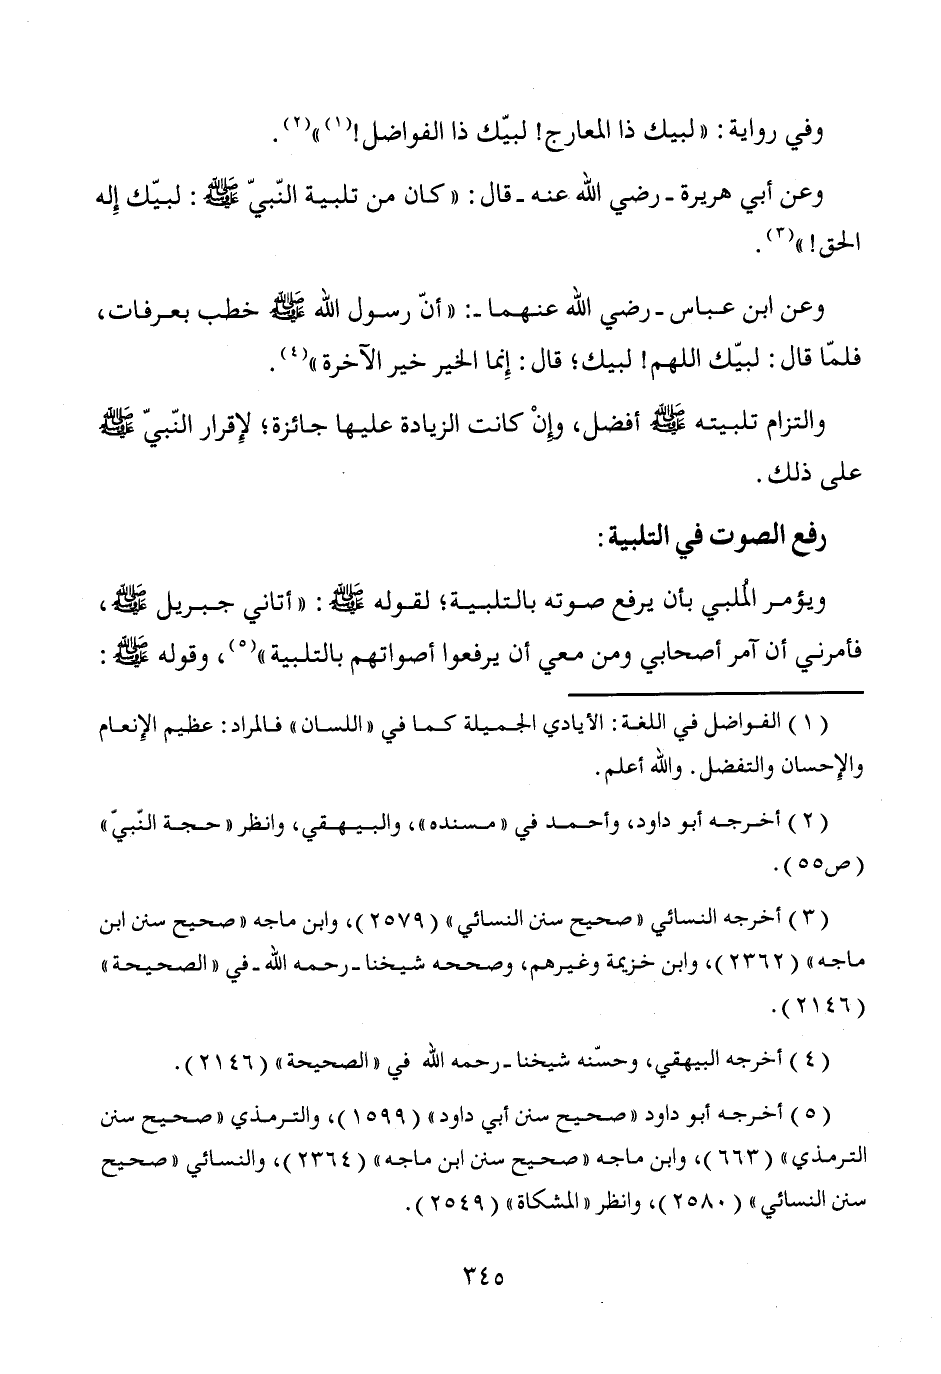 وفي رواية: «لبيك ذا المعارج! لبيّك ذا الفواضل!(١)»(٢).
وعن أبي هريرة ـ رضي الله عنه ـ قال: «كان من تلبية النّبيّ ﷺ: لبيّك إله
الحق!»(٣).
وعن ابن عباس ـ رضي الله عنهما ـ: «أنّ رسول الله ﷺ خطب بعرفات،
فلمّا قال: لبيّك اللهم! لبيك؛ قال: إِنما الخير خير الآخرة»(٤).
والتزام تلبيته ﷺ أفضل، وإِنْ كانت الزيادة عليها جائزة؛ لإِقرار النّبيّ ﷺ
على ذلك.
رفع الصوت في التلبية:
ويؤمر المُلبي بأن يرفع صوته بالتلبية؛ لقوله ﷺ: «أتاني جبريل ﷺ،
فأمرني أن آمر أصحابي ومن معي أن يرفعوا أصواتهم بالتلبية»(٥)، وقوله ﷺ:
(١) الفواضل في اللغة: الأيادي الجميلة كما في «اللسان» فالمراد: عظيم الإِنعام
والإِحسان والتفضل. والله أعلم.
(٢) أخرجه أبو داود، وأحمد في «مسنده»، والبيهقي، وانظر «حجة النّبيّ»
(ص٥٥).
(٣) أخرجه النسائي «صحيح سنن النسائي» (٢٥٧٩)، وابن ماجه «صحيح سنن ابن
ماجه» (٢٣٦٢)، وابن خزيمة وغيرهم، وصححه شيخنا ـ رحمه الله ـ في «الصحيحة»
(٢١٤٦).
(٤) أخرجه البيهقي، وحسّنه شيخنا ـ رحمه الله في «الصحيحة» (٢١٤٦).
(٥) أخرجه أبو داود «صحيح سنن أبي داود» (١٥٩٩)، والترمذي «صحيح سنن
الترمذي» (٦٦٣)، وابن ماجه «صحيح سنن ابن ماجه» (٢٣٦٤)، والنسائي «صحيح
سنن النسائي» (٢٥٨٠)، وانظر «المشكاة» (٢٥٤٩).
٣٤٥